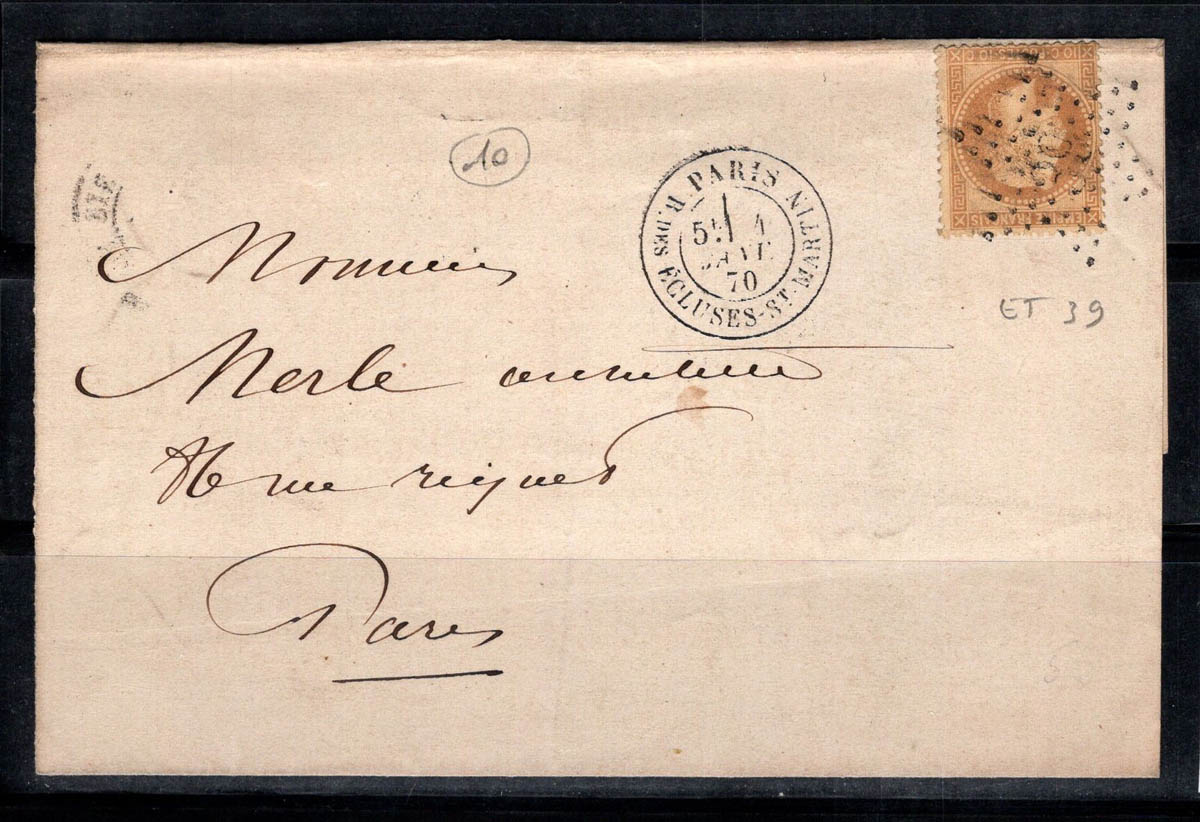 10
PARIS
R. DES ÉCLUSES-ST-MARTIN
5E 4
JANV.
70
39
ET 39
Monsieur
Merle
rue riquet
Paris